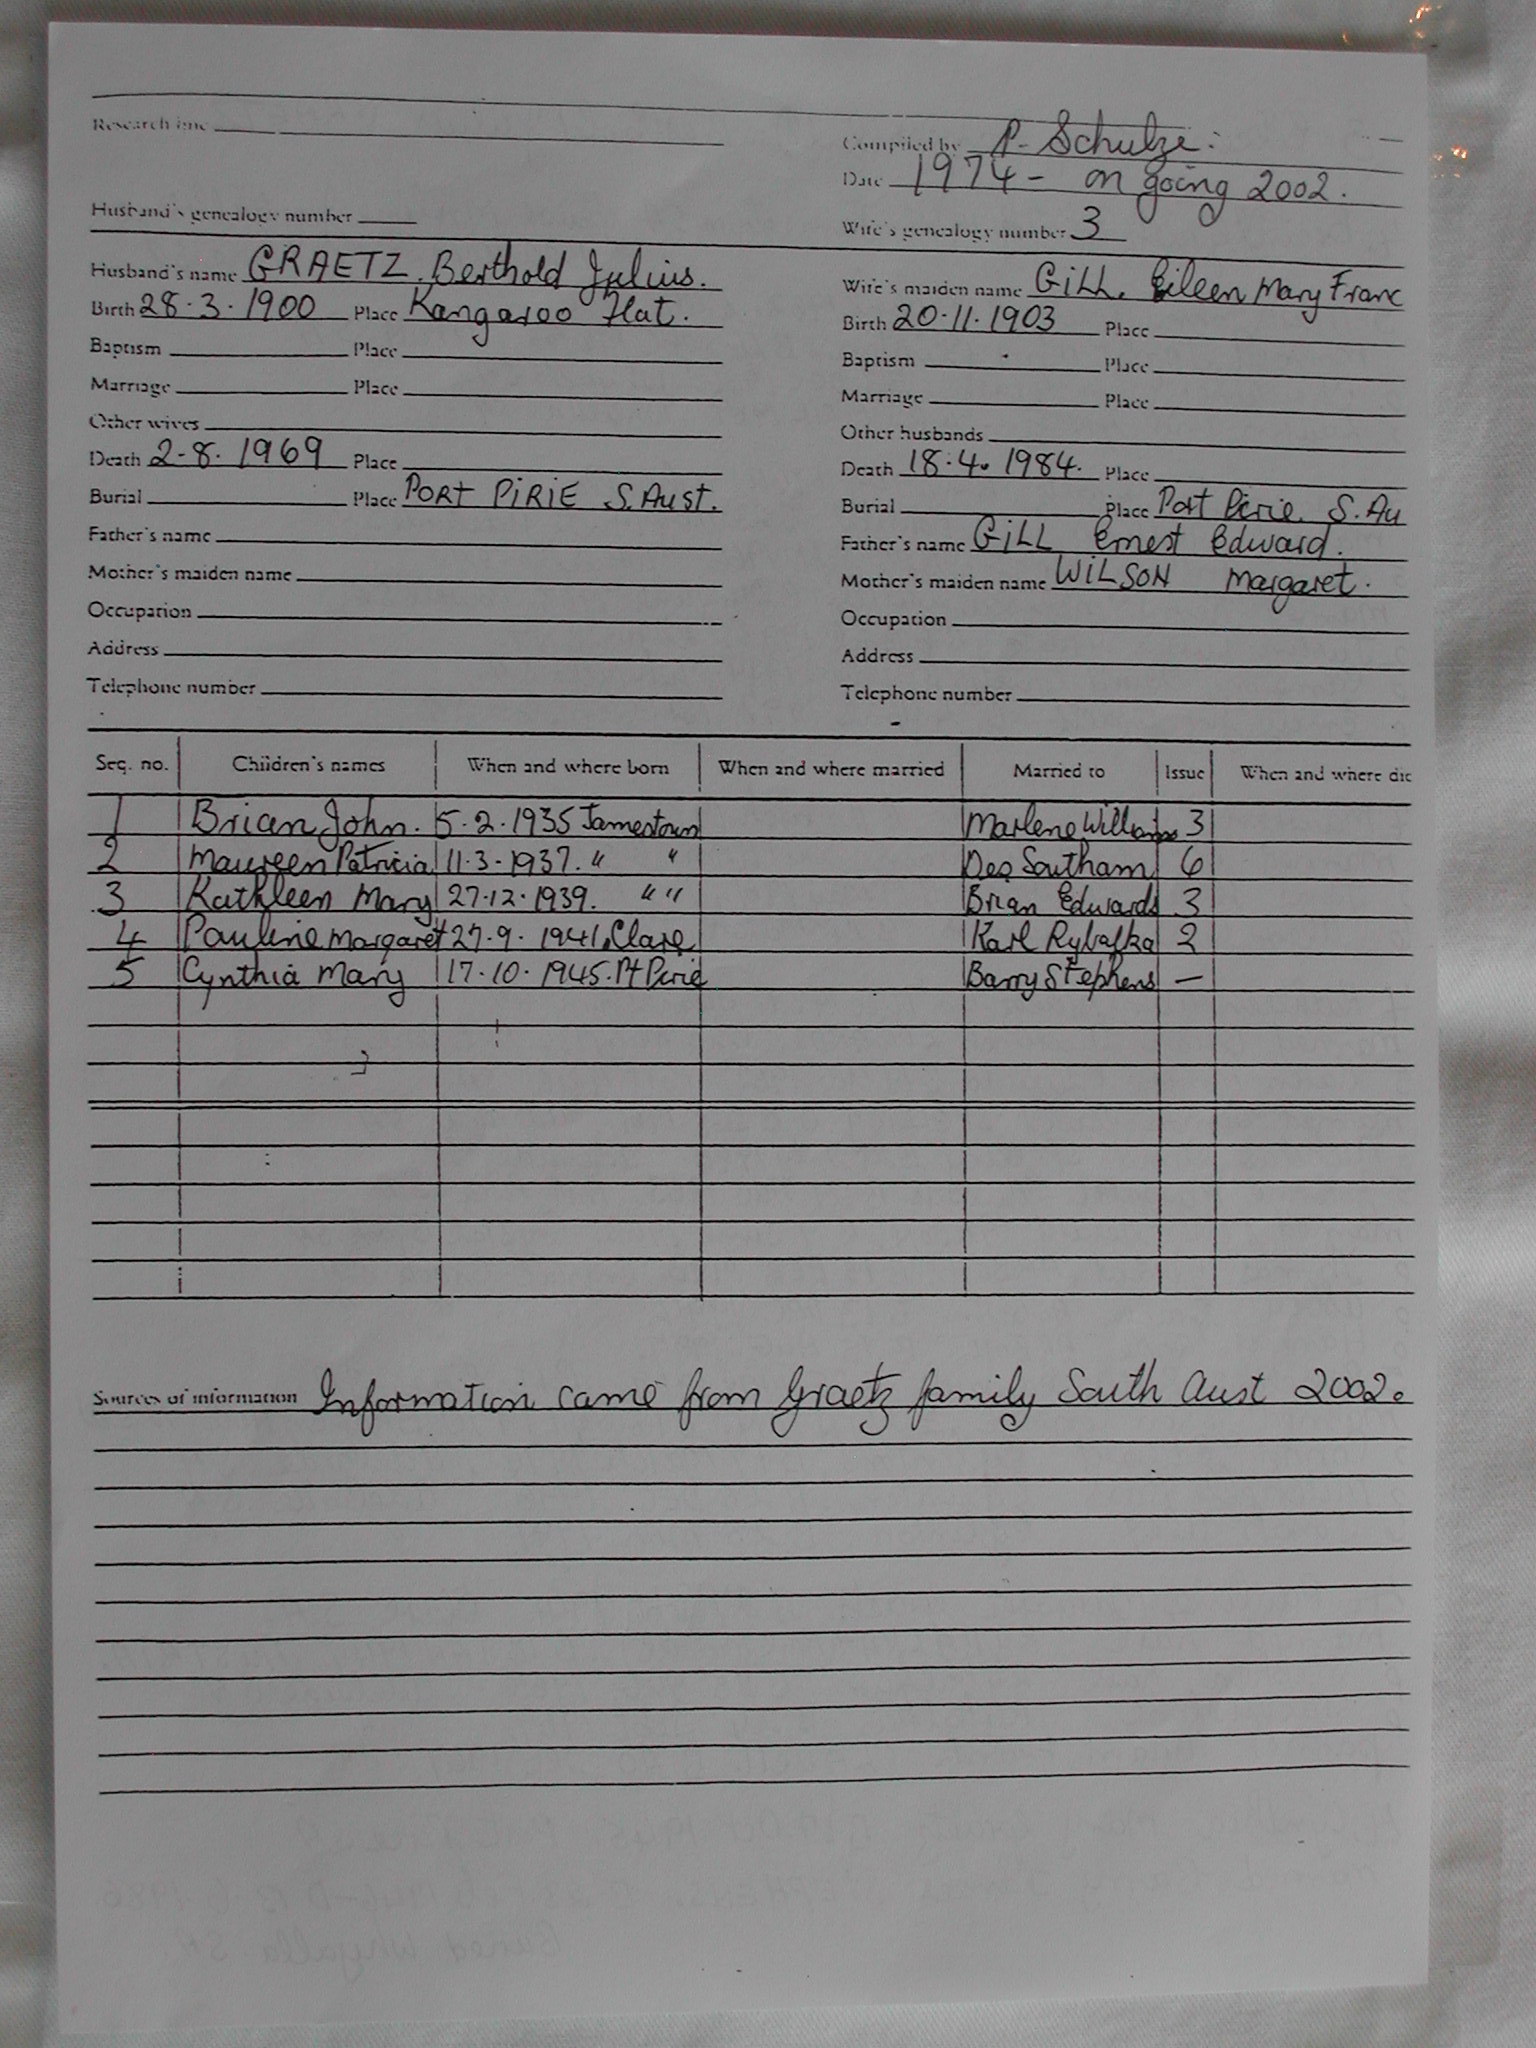 Research line
Compiled by P. Schulze.
Date 1974 - on going 2002.
Husband's genealogy number
Wife's genealogy number 3
Husband's name GRAETZ. Berthold Julius.
Wife's maiden name GILL. Eileen Mary Franc
Birth 28.3.1900 Place Kangaroo Flat.
Birth 20.11.1903 Place
Baptism Place
Baptism Place
Marriage Place
Marriage Place
Other wives
Other husbands
Death 2-8.1969 Place
Death 18.4.1984. Place
Burial Place PORT PIRIE S. Aust.
Burial Place Port Pirie. S. Au
Father's name
Father's name GILL Ernest Edward.
Mother's maiden name
Mother's maiden name WILSON Margaret.
Occupation
Occupation
Address
Address
Telephone number
Telephone number
Seq. no. Children's names When and where born When and where married Married to Issue When and where die
1 Brian John. 5.2.1935 Jamestown Marlene Williams 3
2 Maureen Patricia 11.3.1937. " " Des Southam 6
3 Kathleen Mary 27.12.1939. " " Brian Edwards 3
4 Pauline Margaret 27.9.1941. Clare Karl Rybafka 2
5 Cynthia Mary 17.10.1945. Pt Pirie Barry Stephens —
Sources of information Information came from Graetz family South Aust 2002.